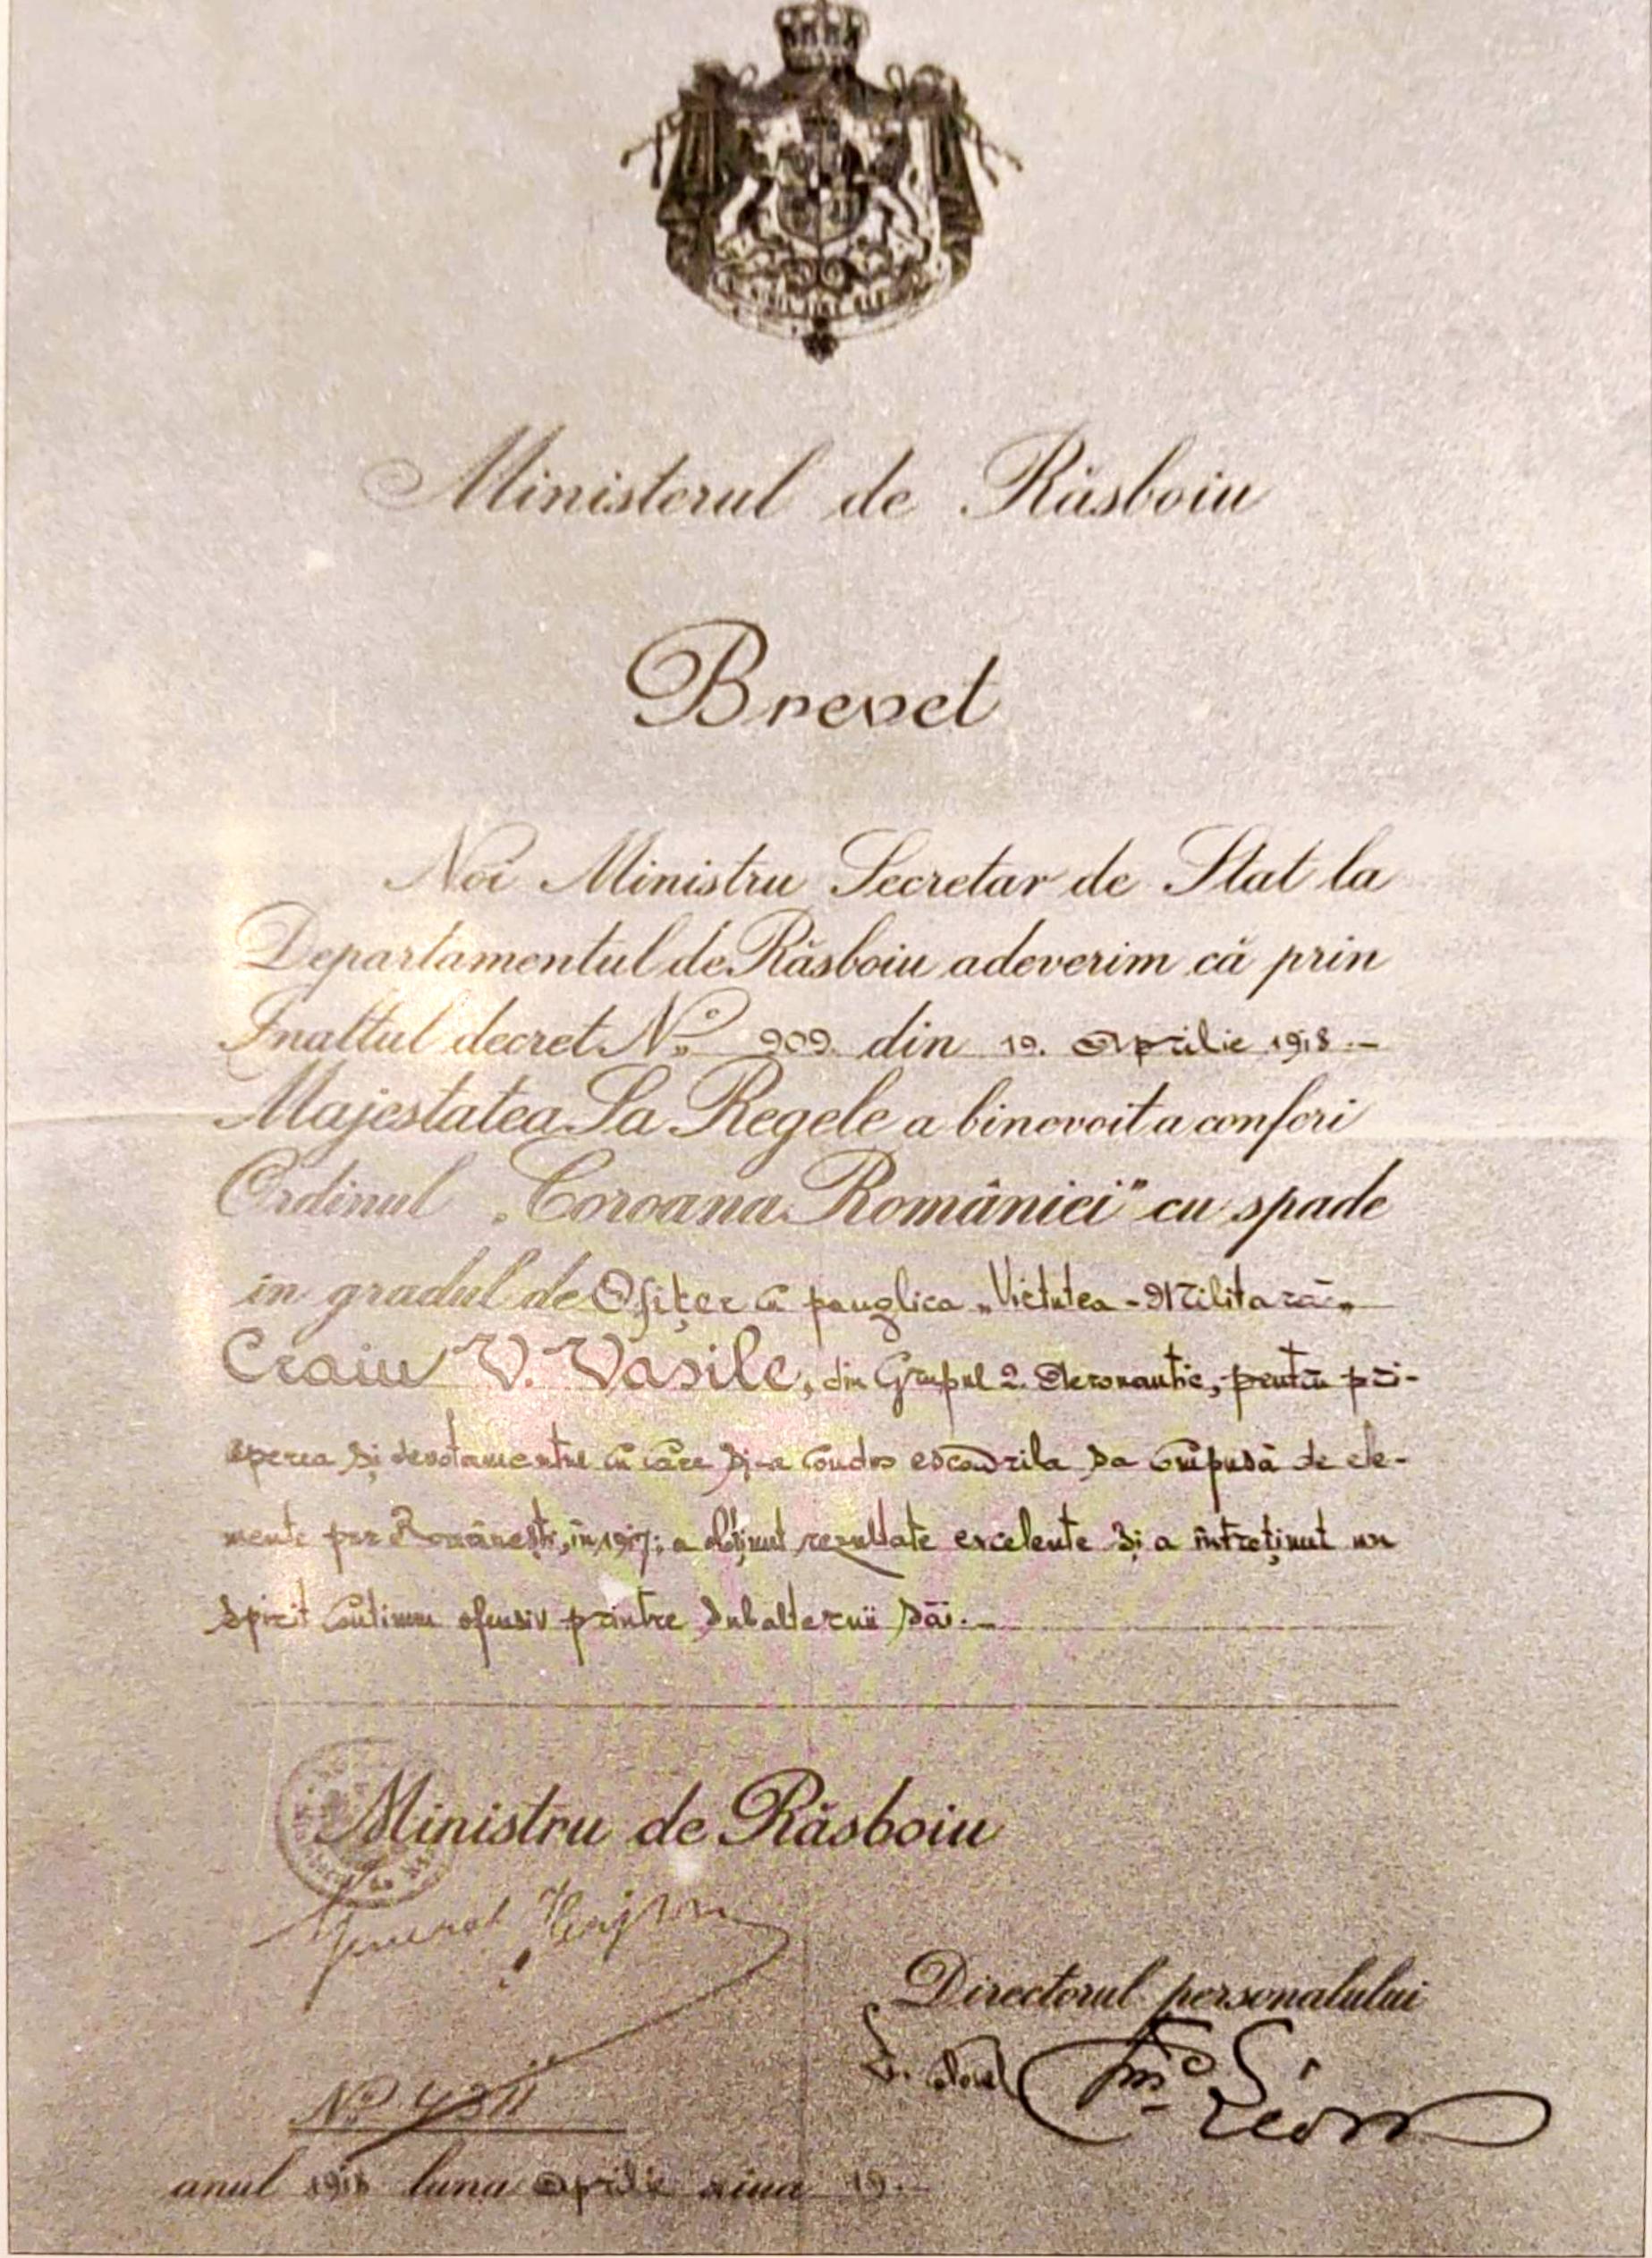 Ministerul de Răsboiu
Brevet
Noi Ministru Secretar de Stat la
Departamentul de Răsboiu adeverim că prin
Inaltul decret No. 909 din 19. Aprilie 1918.-
Majestatea Sa Regele a binevoit a conferi
Ordinul „Coroana României" cu spade
in gradul de Ofițer cu panglica „Virtutea-Militară"
Craiu V. Vasile, din Grupul 2. Aeronautic, pentru pri-
eperea și devotamentul cu care și-a condus escadrila sa compusă de ele-
mente pur Românești, în 1917; a obținut rezultate excelente și a întreținut un
spirit continuu ofensiv printre subalternii săi.-
Ministru de Răsboiu
General
Directorul personalului
Lt. Colonel
No. 4311
anul 1918 luna Aprilie ziua 19.-